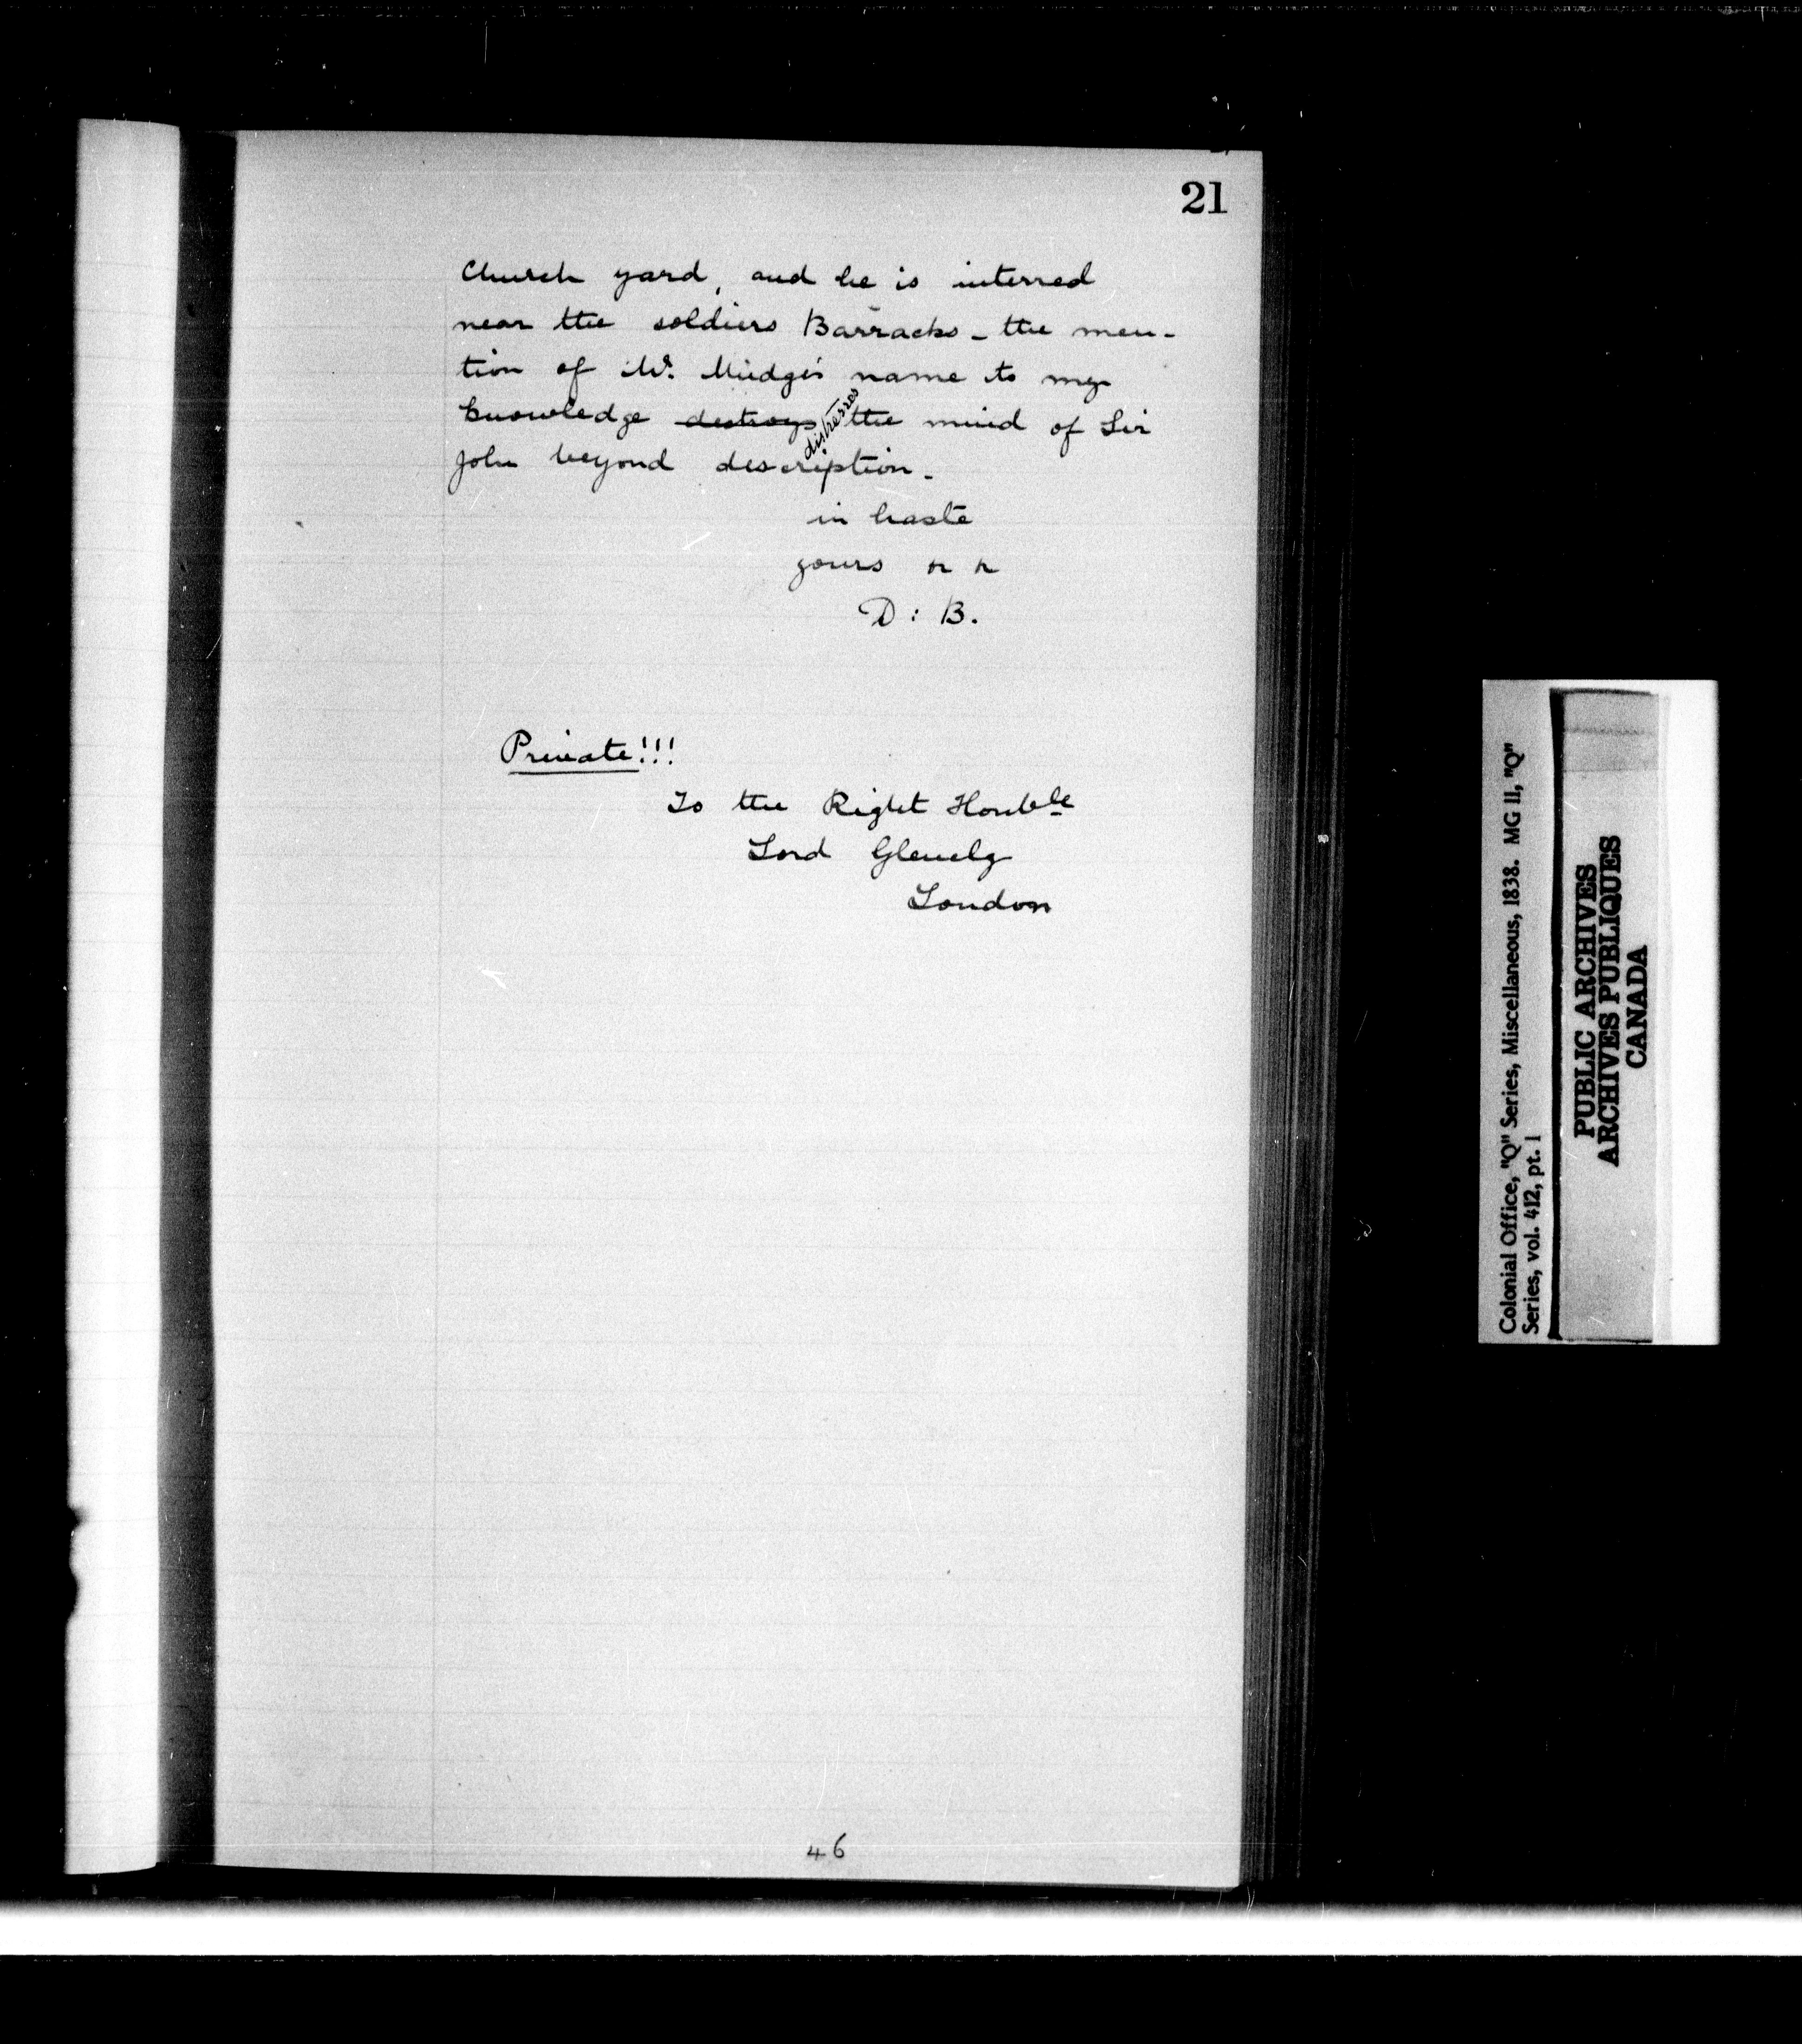 21
Church yard, and he is interred
near the soldiers Barracks - the men-
tion of Mr. Mudge's name to my
knowledge destroys distresses the mind of Sir
John beyond description.
in haste
yours &c &c
D : B.
Private!!!
To the Right Honble
Lord Glenelg
London
46
Colonial Office, "Q" Series, Miscellaneous, 1838. MG 11, "Q"
Series, vol. 412, pt. 1
PUBLIC ARCHIVES
ARCHIVES PUBLIQUES
CANADA